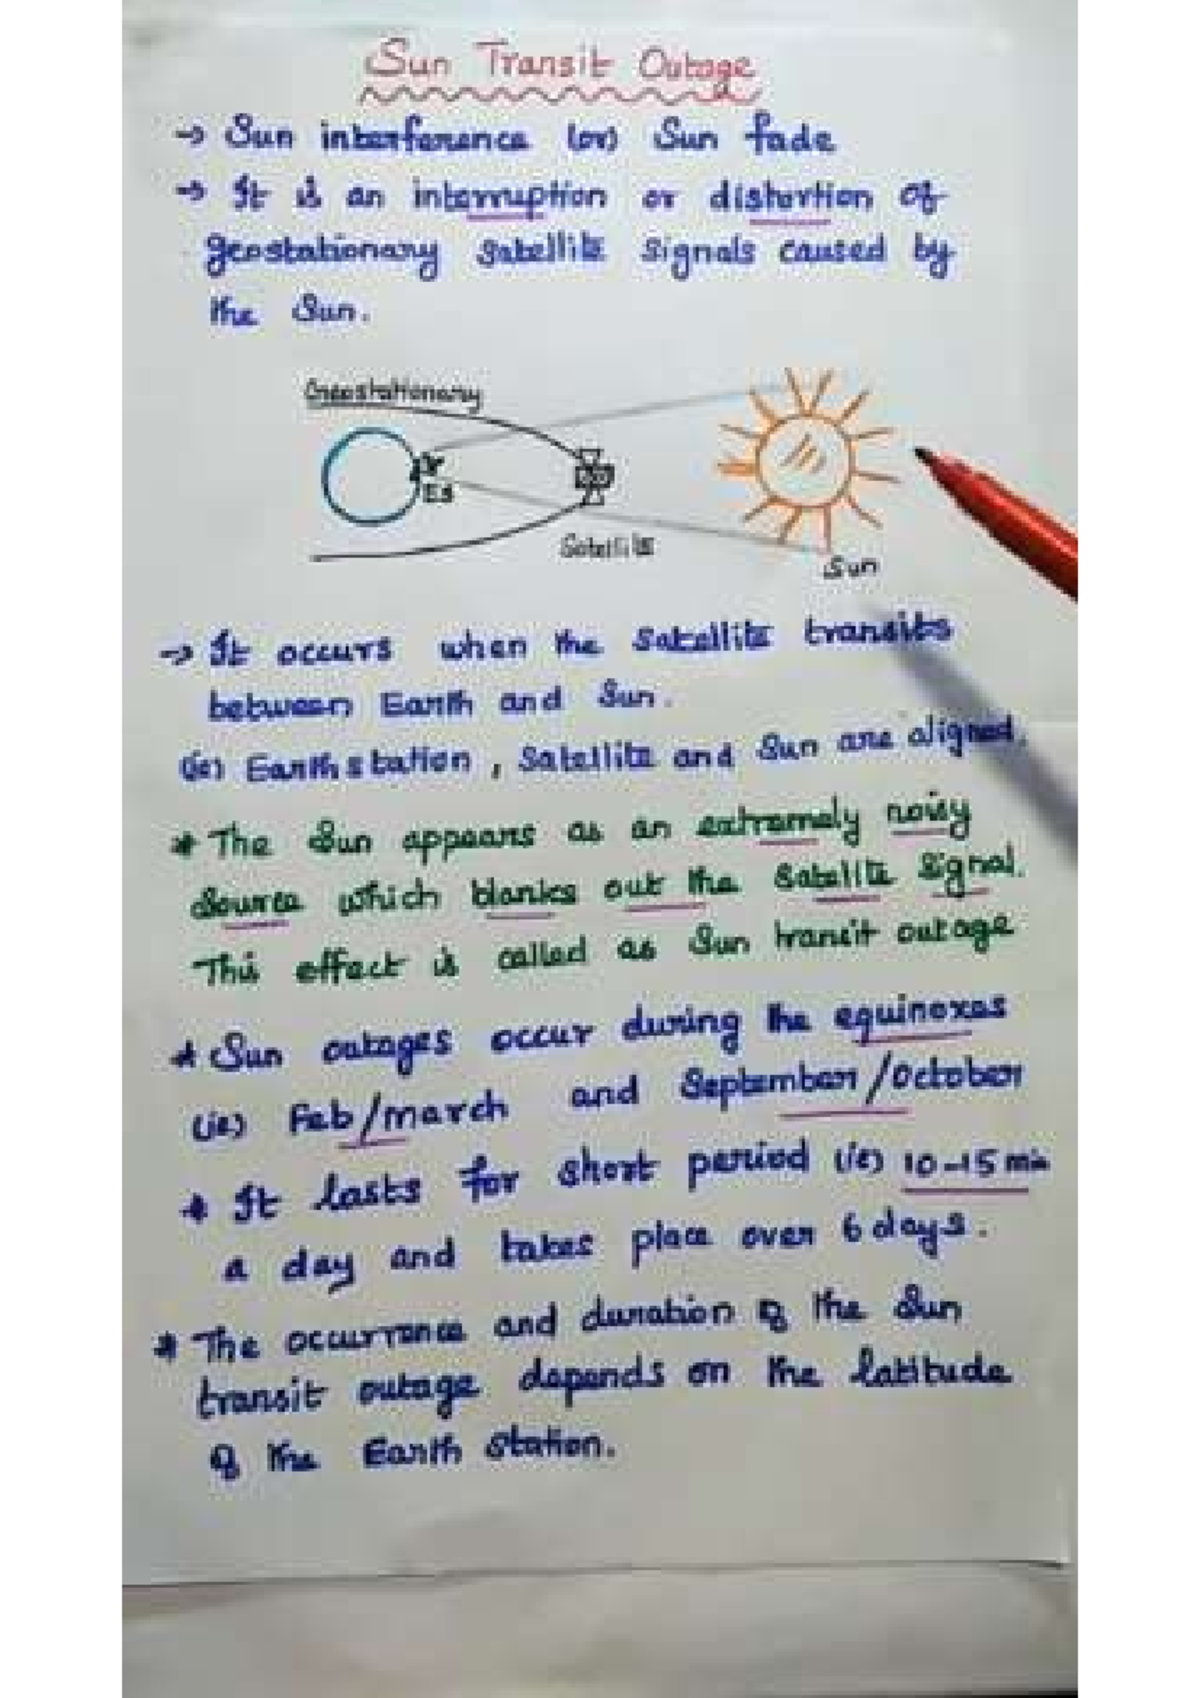 Sun Transit Outage
→ Sun interference (or) Sun fade
→ It is an interruption or distortion of
geostationary satellite signals caused by
the Sun.
Geostationary
ES
Satellite
Sun
→ It occurs when the satellite transits
between Earth and Sun.
(ie) Earth station, Satellite and Sun are aligned.
* The Sun appears as an extremely noisy
source which blanks out the satellite signal.
This effect is called as Sun transit outage
* Sun outages occur during the equinoxes
(ie) Feb/march and September/October
* It lasts for short period (ie) 10-15 min
a day and takes place over 6 days.
* The occurrence and duration of the Sun
transit outage depends on the latitude
of the Earth Station.